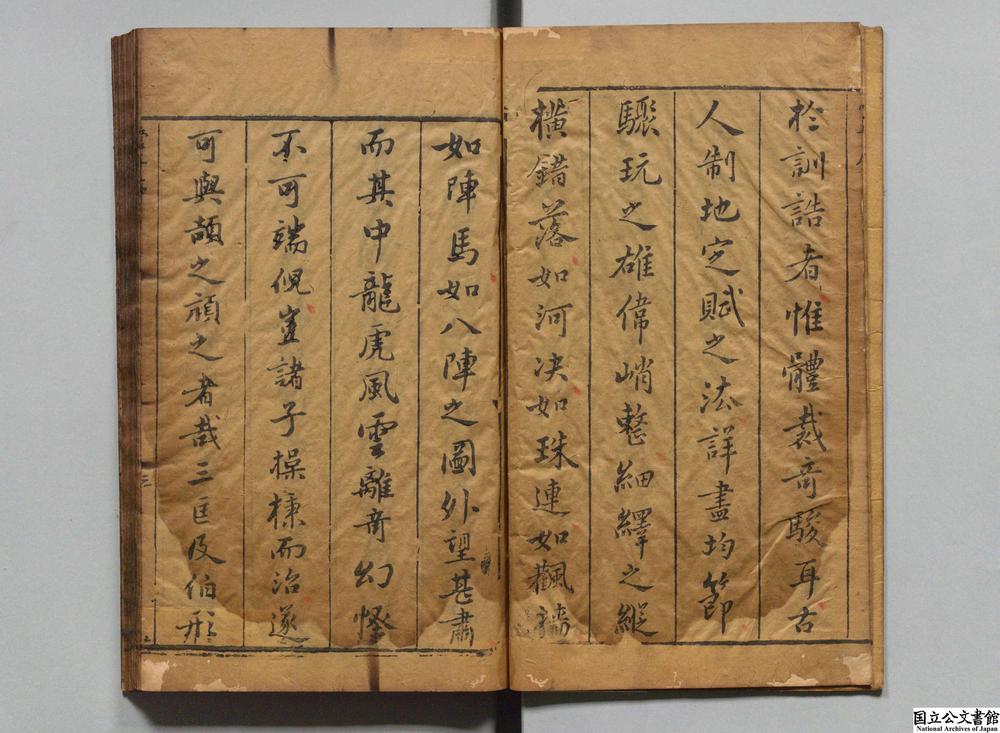 於訓誥者惟體裁奇駿耳古
人制地定賦之法詳盡均節
驟玩之雄偉峭整細繹之縱
橫錯落如河决如珠連如檣
如陣馬如八陣之圖外望甚肅
而其中龍虎風雲離奇幻怪
不可端倪豈諸子操槧而治遂
可與頡之頏之者哉三臣及伯形
三
国立公文書館
National Archives of Japan